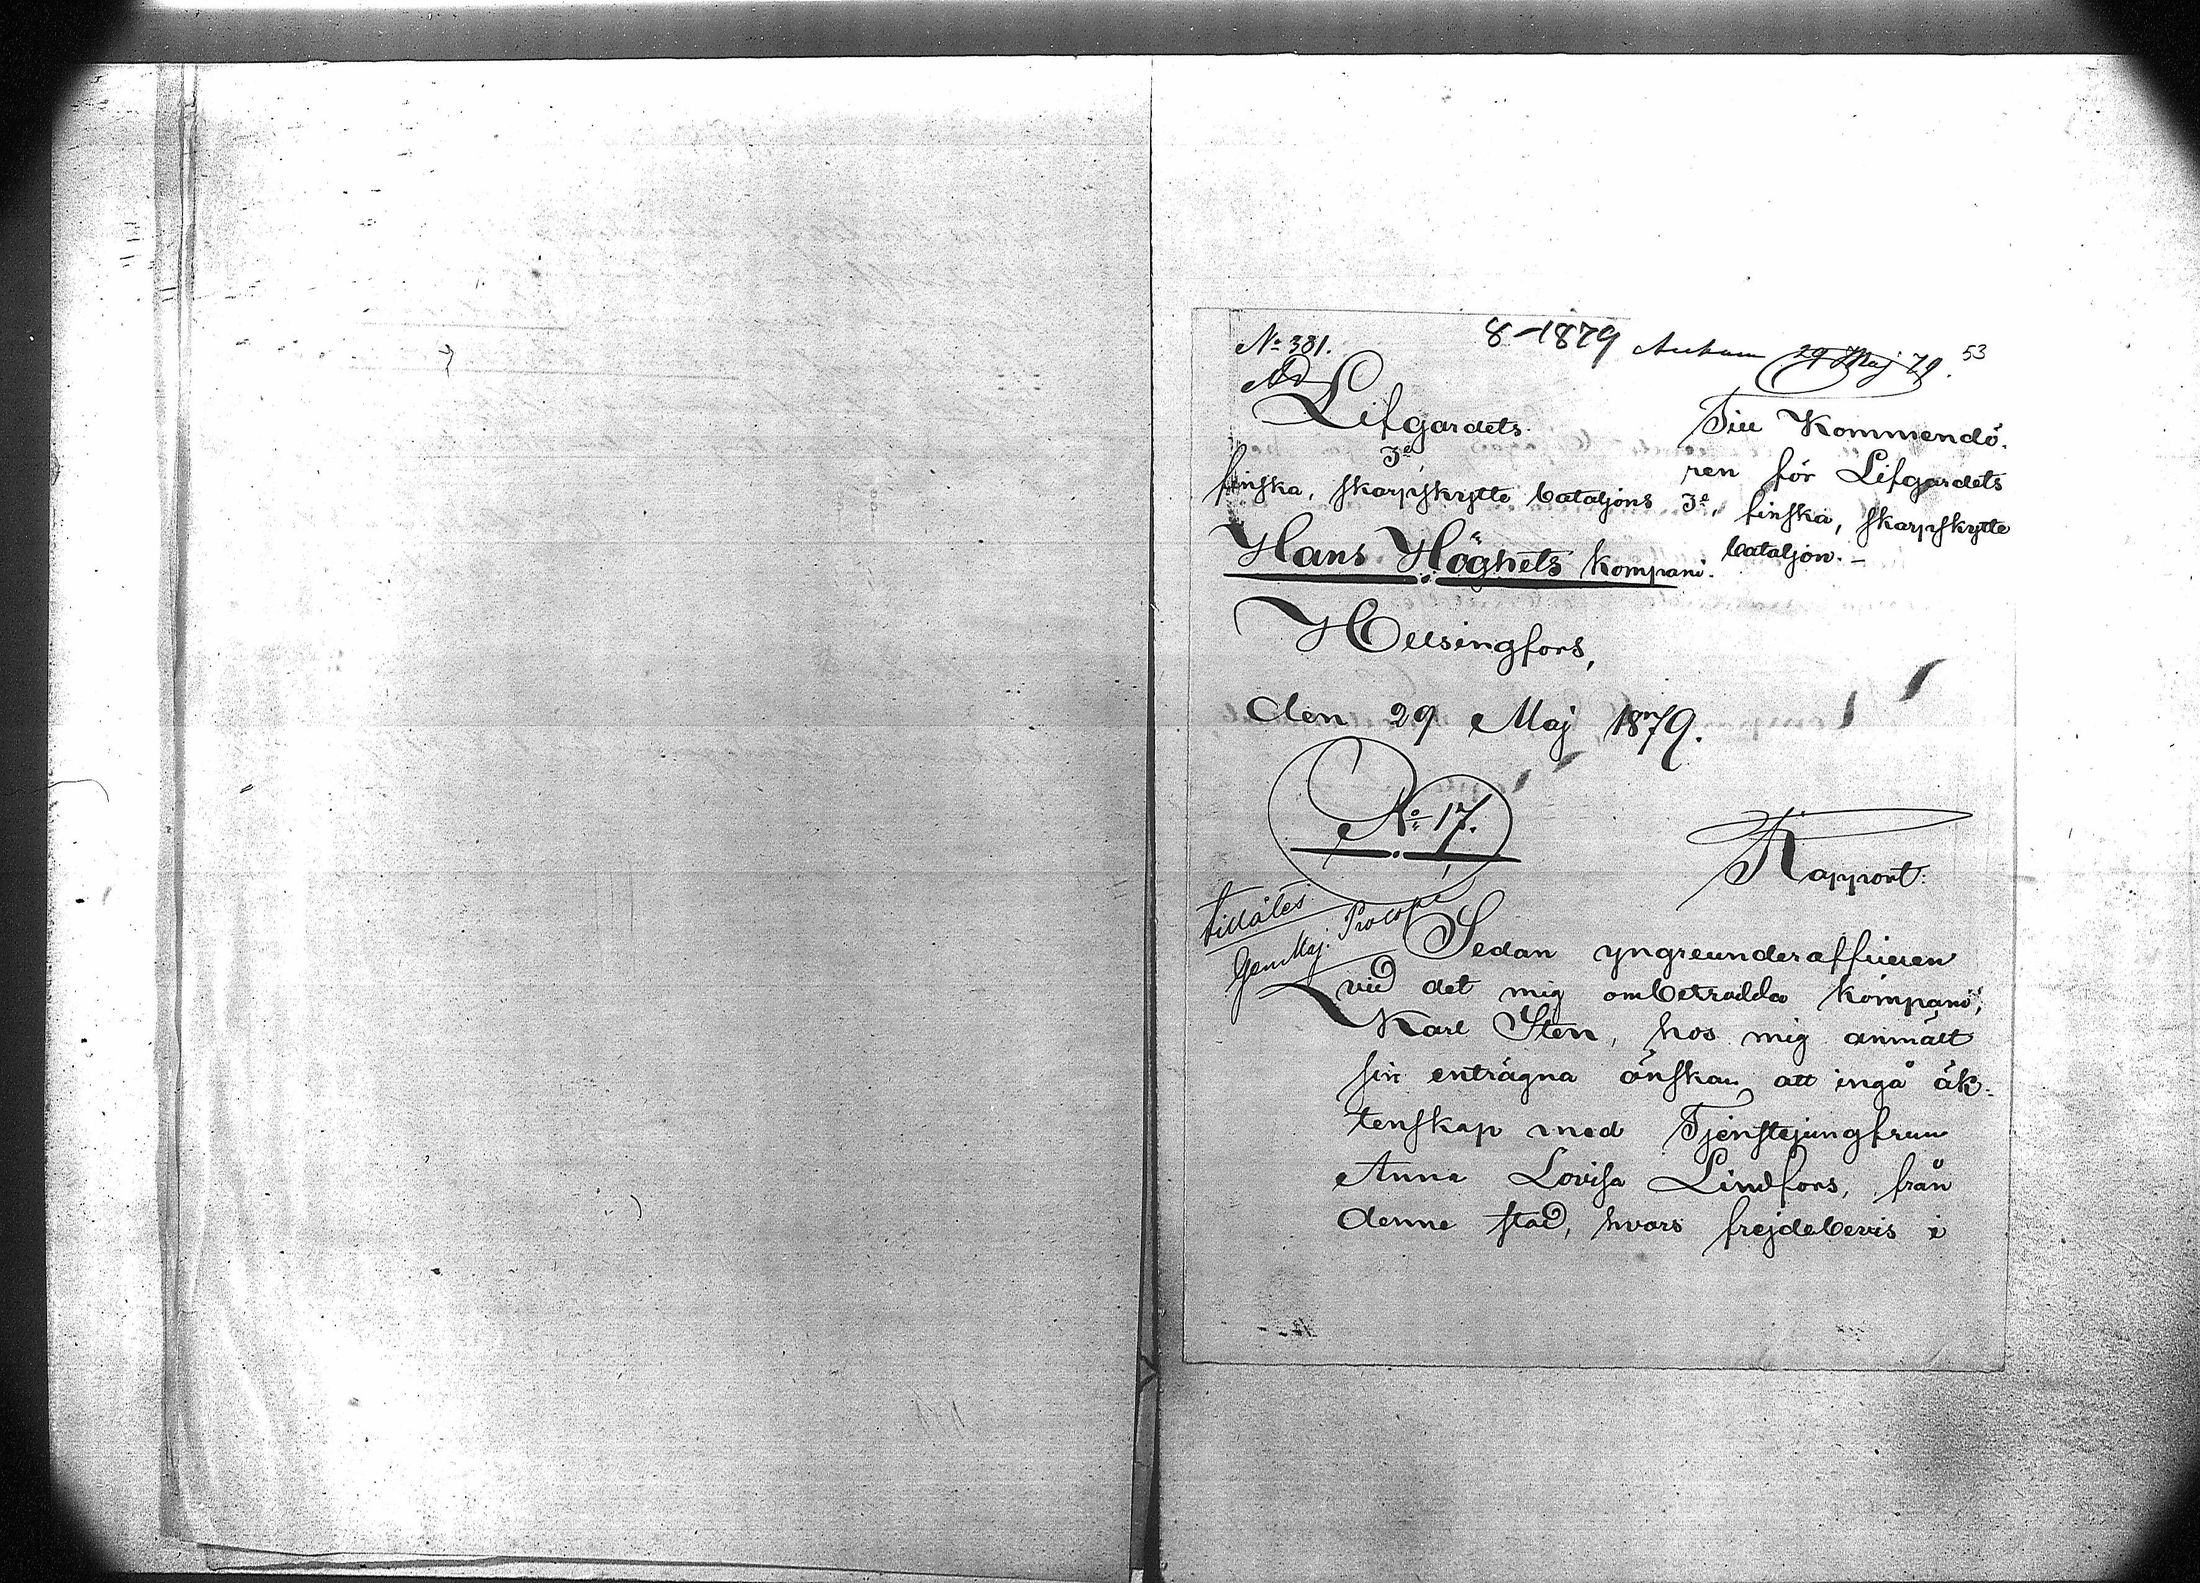 No 381.
8-1879 Ankom 29 Maj 79.
53
Lifgardets
3e,
finska, skarpskytte bataljons
Hans Höghets Kompani.
Till Kommendö-
ren för Lifgardets
3e, finska, skarpskytte
bataljon.-
Helsingfors,
den 29 Maj 1879.
No 17.
Rapport:
tillåtes
GenMaj. Procopé
Sedan yngreunderofficeren
vid det mig ombetrodda Kompani,
Karl Sten, hos mig anmält
sin enträgna önskan att ingå äk-
tenskap med Tjenstejungfrun
Anna Lovisa Lindfors, från
denne stad, hvars frejdebevis i